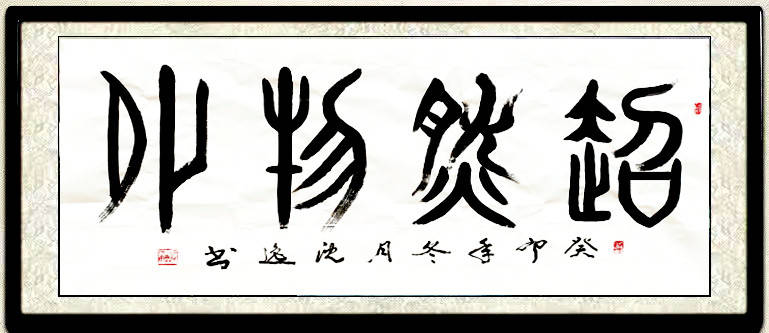 超然物外
癸卯年冬月沈逸书